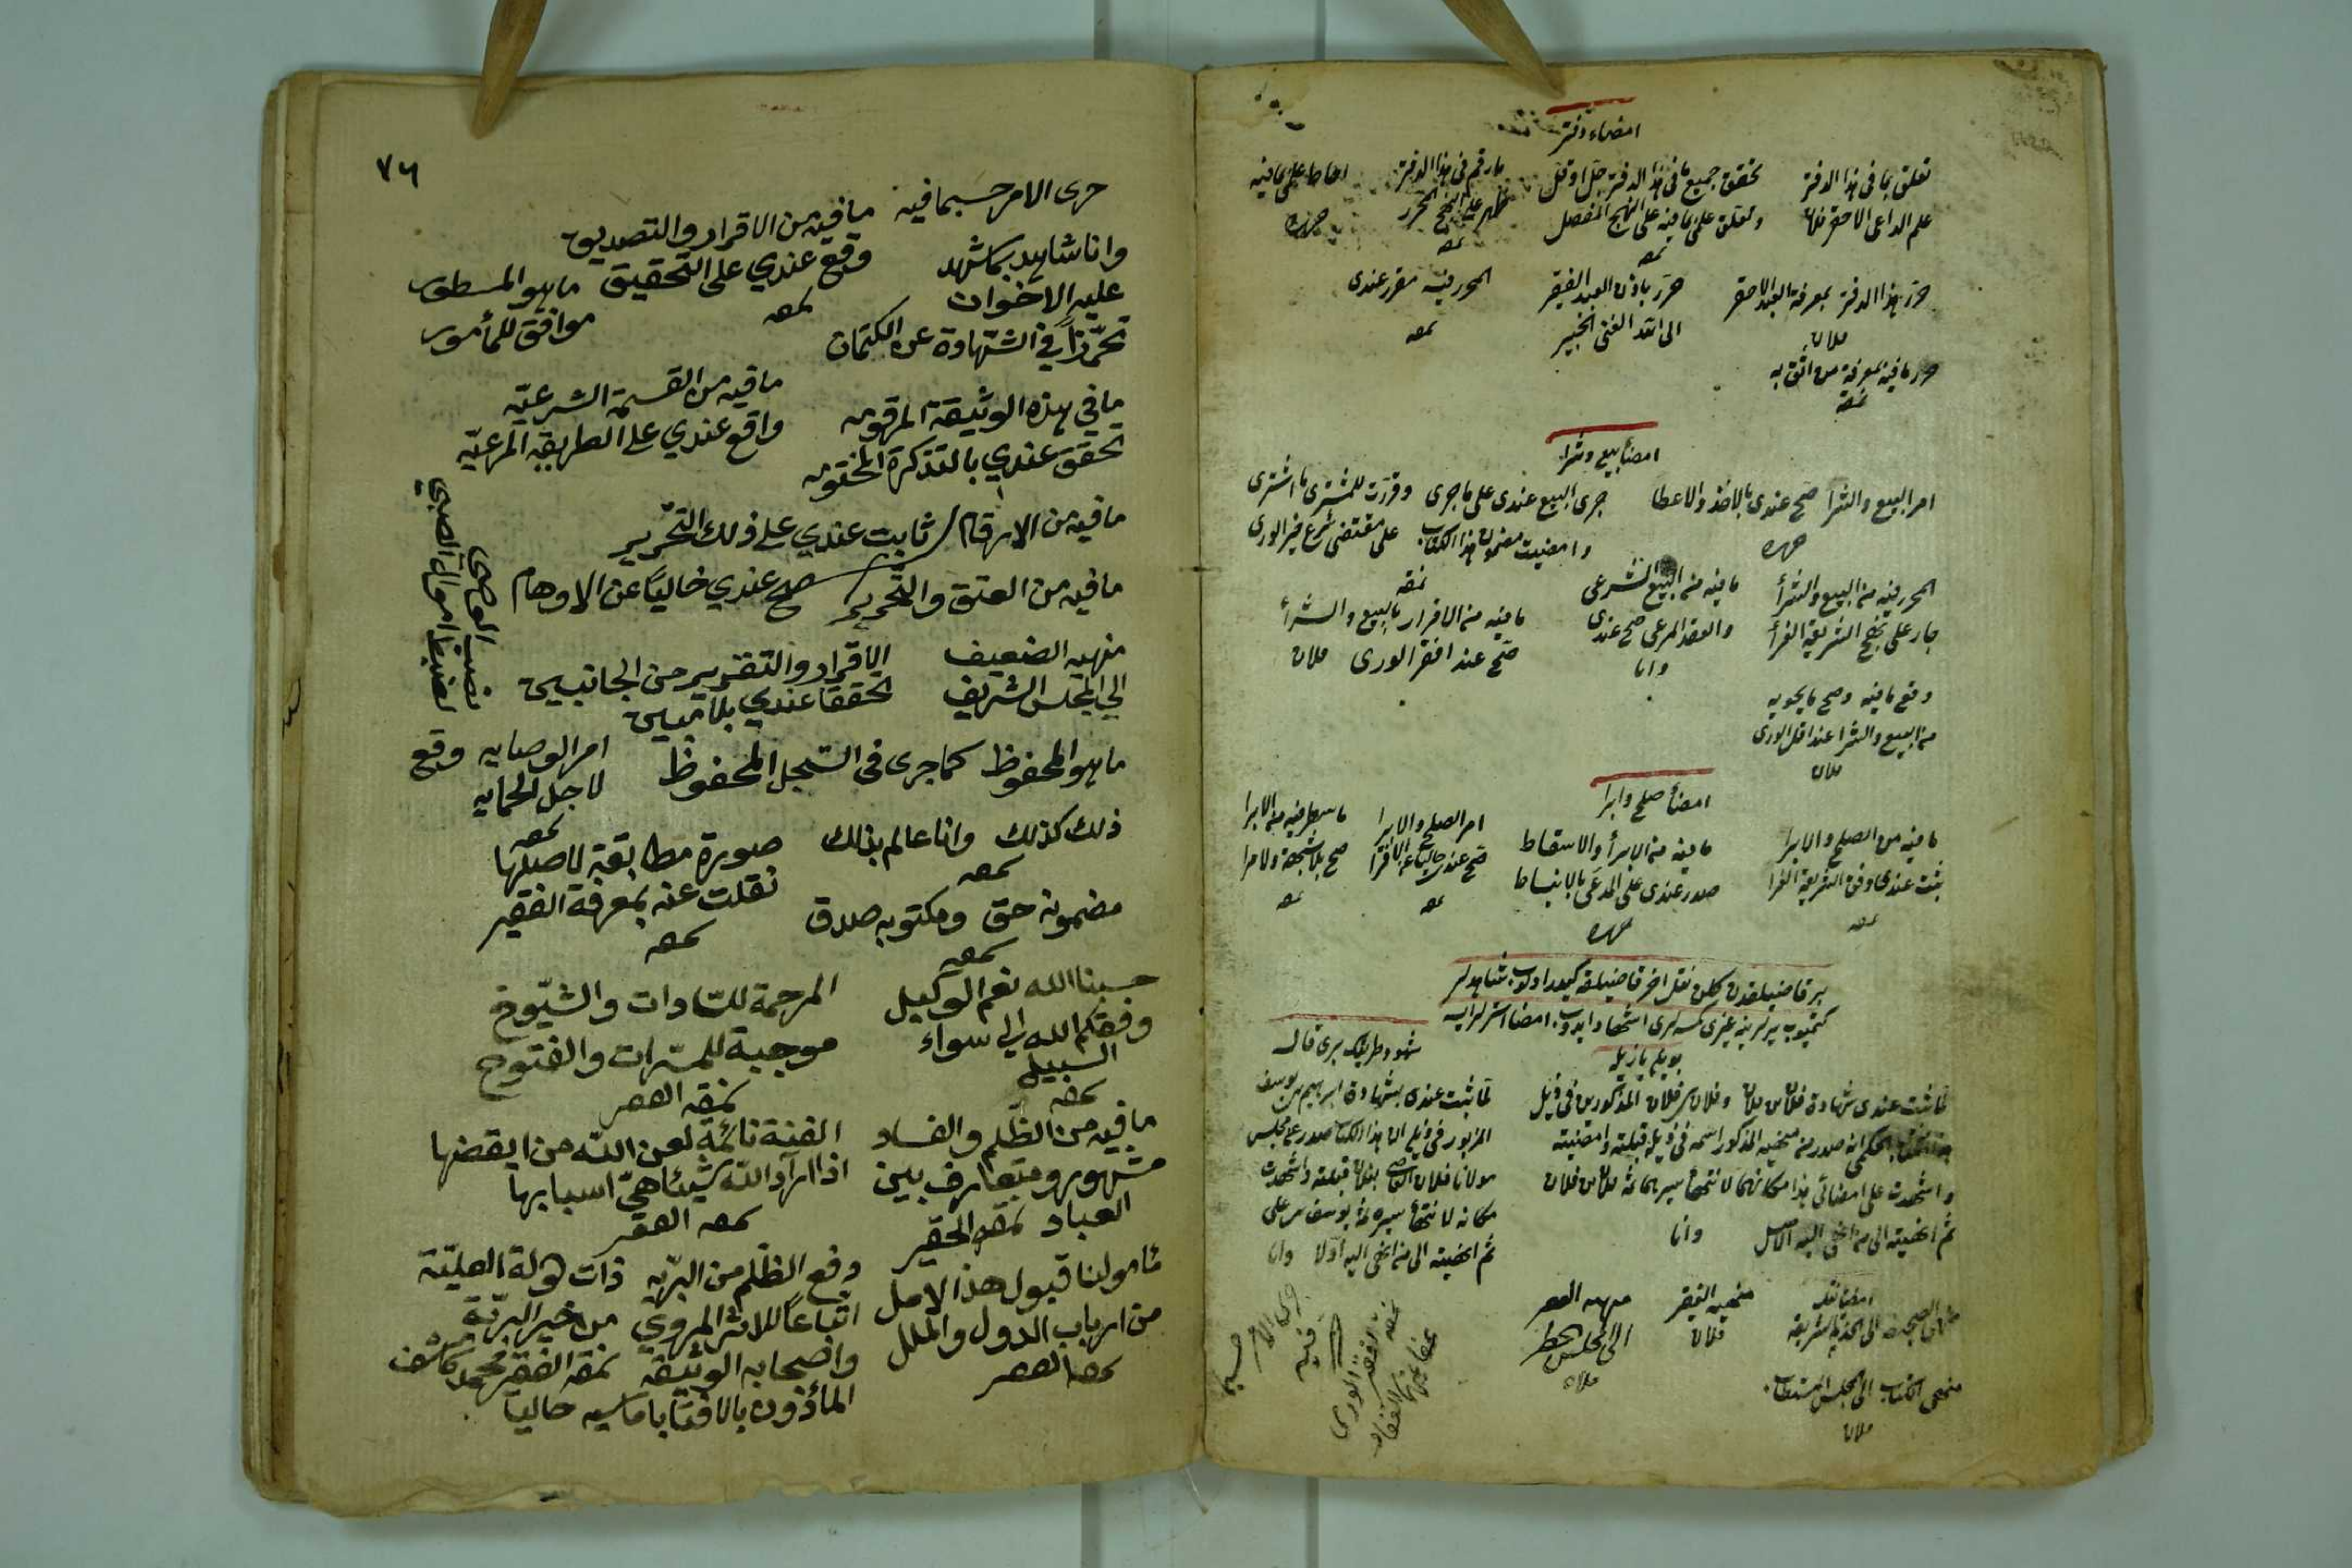 امضاء دفتر
تعلق بما في هذا الدفتر
علم الداعي الاحقر فلان
تحقق جميع ما في هذا الدفتر جل او قل
وتعلق علمي بما فيه على النهج المفصل
نمقه
ما رقم في هذا الدفتر
المحرر
نمقه
احاط علمي بما فيه
حرره
حرر هذا الدفتر بمعرفة العبد الاحقر
فلان
حرر باذن العبد الفقير
الى الله الغني الخبير
المحرر فيه مقرر عندي
نمقه
حرر ما فيه بمعرفة من اثق به
نمقه
امضأ بيع وشرا
امر البيع والشرا صح عندي بالاخذ والاعطا
حرره
جرى البيع عندي على ما جرى وقررت للمشترى ما اشترى
وامضيت مضمون هذا الكتاب على مقتضى شرع خير الورى
نمقه
المحرر فيه من البيع والشرأ
جار على نهج الشريعة الغرأ
ما فيه من البيع الشرعي
والعقد المرعي صح عندي
وانا
ما فيه من الاقرار بالبيع والشرأ
صح عند افقر الورى فلان
وقع ما فيه وصح ما يحويه
من البيع والشرا عند اقل الورى
فلان
امضأ صلح وابرا
ما فيه من الصلح والابرا
ثبت عندي وفق الشريعة الغرا
نمقه
ما فيه من الابرأ والاسقاط
صدر عندي على المدعى بالانبساط
حرره
امر الصلح والابرا
صح عندي خاليا عن الافترا
نمقه
ما سطر فيه من الابرا
صح بلا شبهة ولا مرا
نمقه
بر قاضيلقدن كلن نقل اخر قاضيلقه كيدر اولوب شاهدلر
كتميوب يرلرينه غيرى كمسنلرى اشهاد ايدوب امضا استرلر ايسه
بويله يازيله
لما ثبت عندي شهادة فلان بن فلان وفلان بن فلان المذكورين في ذيل
هذا الكتاب الحكمي انه صدر من منهيه المذكور اسمه في ذيله قبلته وامضيته
واشهدت على امضائي هذا مكانهما لانتهأ سيرهما ثمه فلان بن فلان
ثم انهيته الى من انهى اليه الاصل وانا
شهود طريقك برى قال
لما ثبت عندي بشهادة ابراهيم بن يوسف
المزبور في ذيله ان هذا الكتاب صدر عن مجلس
مولانا فلان القاضي بفلان قبلته واشهدت
مكانه لانتهأ سيره ثمه يوسف بن على
ثم انهيته الى من انهى اليه اولا وانا
امضأ نقل
منهيه الفقير
فلان
الى المجلس الخطير
فلان
منهى الكتاب الى المجلس المستطاب
فلان
جرى الامر حسبما
فيه
نمقه افقر الورى
عفا عنه الغفار
٧٦
جرى الامر حسبما فيه
ما فيه من الاقرار والتصديق
وقع عندي على التحقيق
نمقه
وانا شاهد بما شهد
عليه الاخوان
تحرزاً في الشهادة عن الكتمان
ما هو المسطور
موافق للمأمور
ما في هذه الوثيقة المرقومه
تحقق عندي بالتذكرة المختومه
ما فيه من القسمة الشرعيّه
واقع عندي على الطريقة المرعيّه
ما فيه من الارقام
ثابت عندي على ذلك التّحرير
ما فيه من العتق والتّحرير
صح عندي خالياً عن الاوهام
نصب الوصي
لضبط اموال الصبي
منهيه الضعيف
الى المجلس الشريف
الاقرار والتقرير من الجانبين
تحققا عندي بلا مين
ما هو المحفوظ كما جرى في السّجل المحفوظ
امر الوصايه وقع
لاجل الحمايه
نمقه
ذلك كذلك وانا عالم بذلك
نمقه
صورة مطابقة لاصلها
نقلت عنه بمعرفة الفقير
نمقه
مضمونه حق ومكتوبه صدق
نمقه
حسبنا الله نعم الوكيل
وفقكم الله الى سواء
السبيل
نمقه
المرحمة للسّادات والشيّوخ
موجبة للمسرات والفتوح
نمقه الفقير
ما فيه من الظّلم والفساد
مشهور ومتعارف بين
العباد نمقه الحقير
الفتنة نائمة لعن الله من ايقضها
اذا اراد الله شيئا هيّأ اسبابها
نمقه الفقير
مأمولنا قبول هذا الامل
من ارباب الدول والملل
نمقه الفقير
دفع الظّلم من البرّيه ذات دولة العليّة
اتباعاً للاثر المروي من خير البريّة
واصحابه الوثيقه نمقه الفقير محمد كاشف
المأذون بالافتا باماسيه حاليا